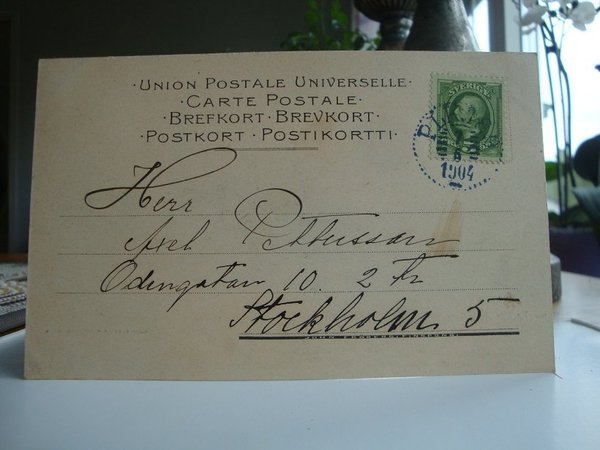 · UNION POSTALE UNIVERSELLE ·
· CARTE POSTALE ·
· BREFKORT · BREVKORT ·
· POSTKORT · POSTIKORTTI ·
SVERIGE
1904
Herr
Axel Pettersson
Odengatan 10. 2 tr
Stockholm 5
JOHN FRÖBERG, FINSPONG